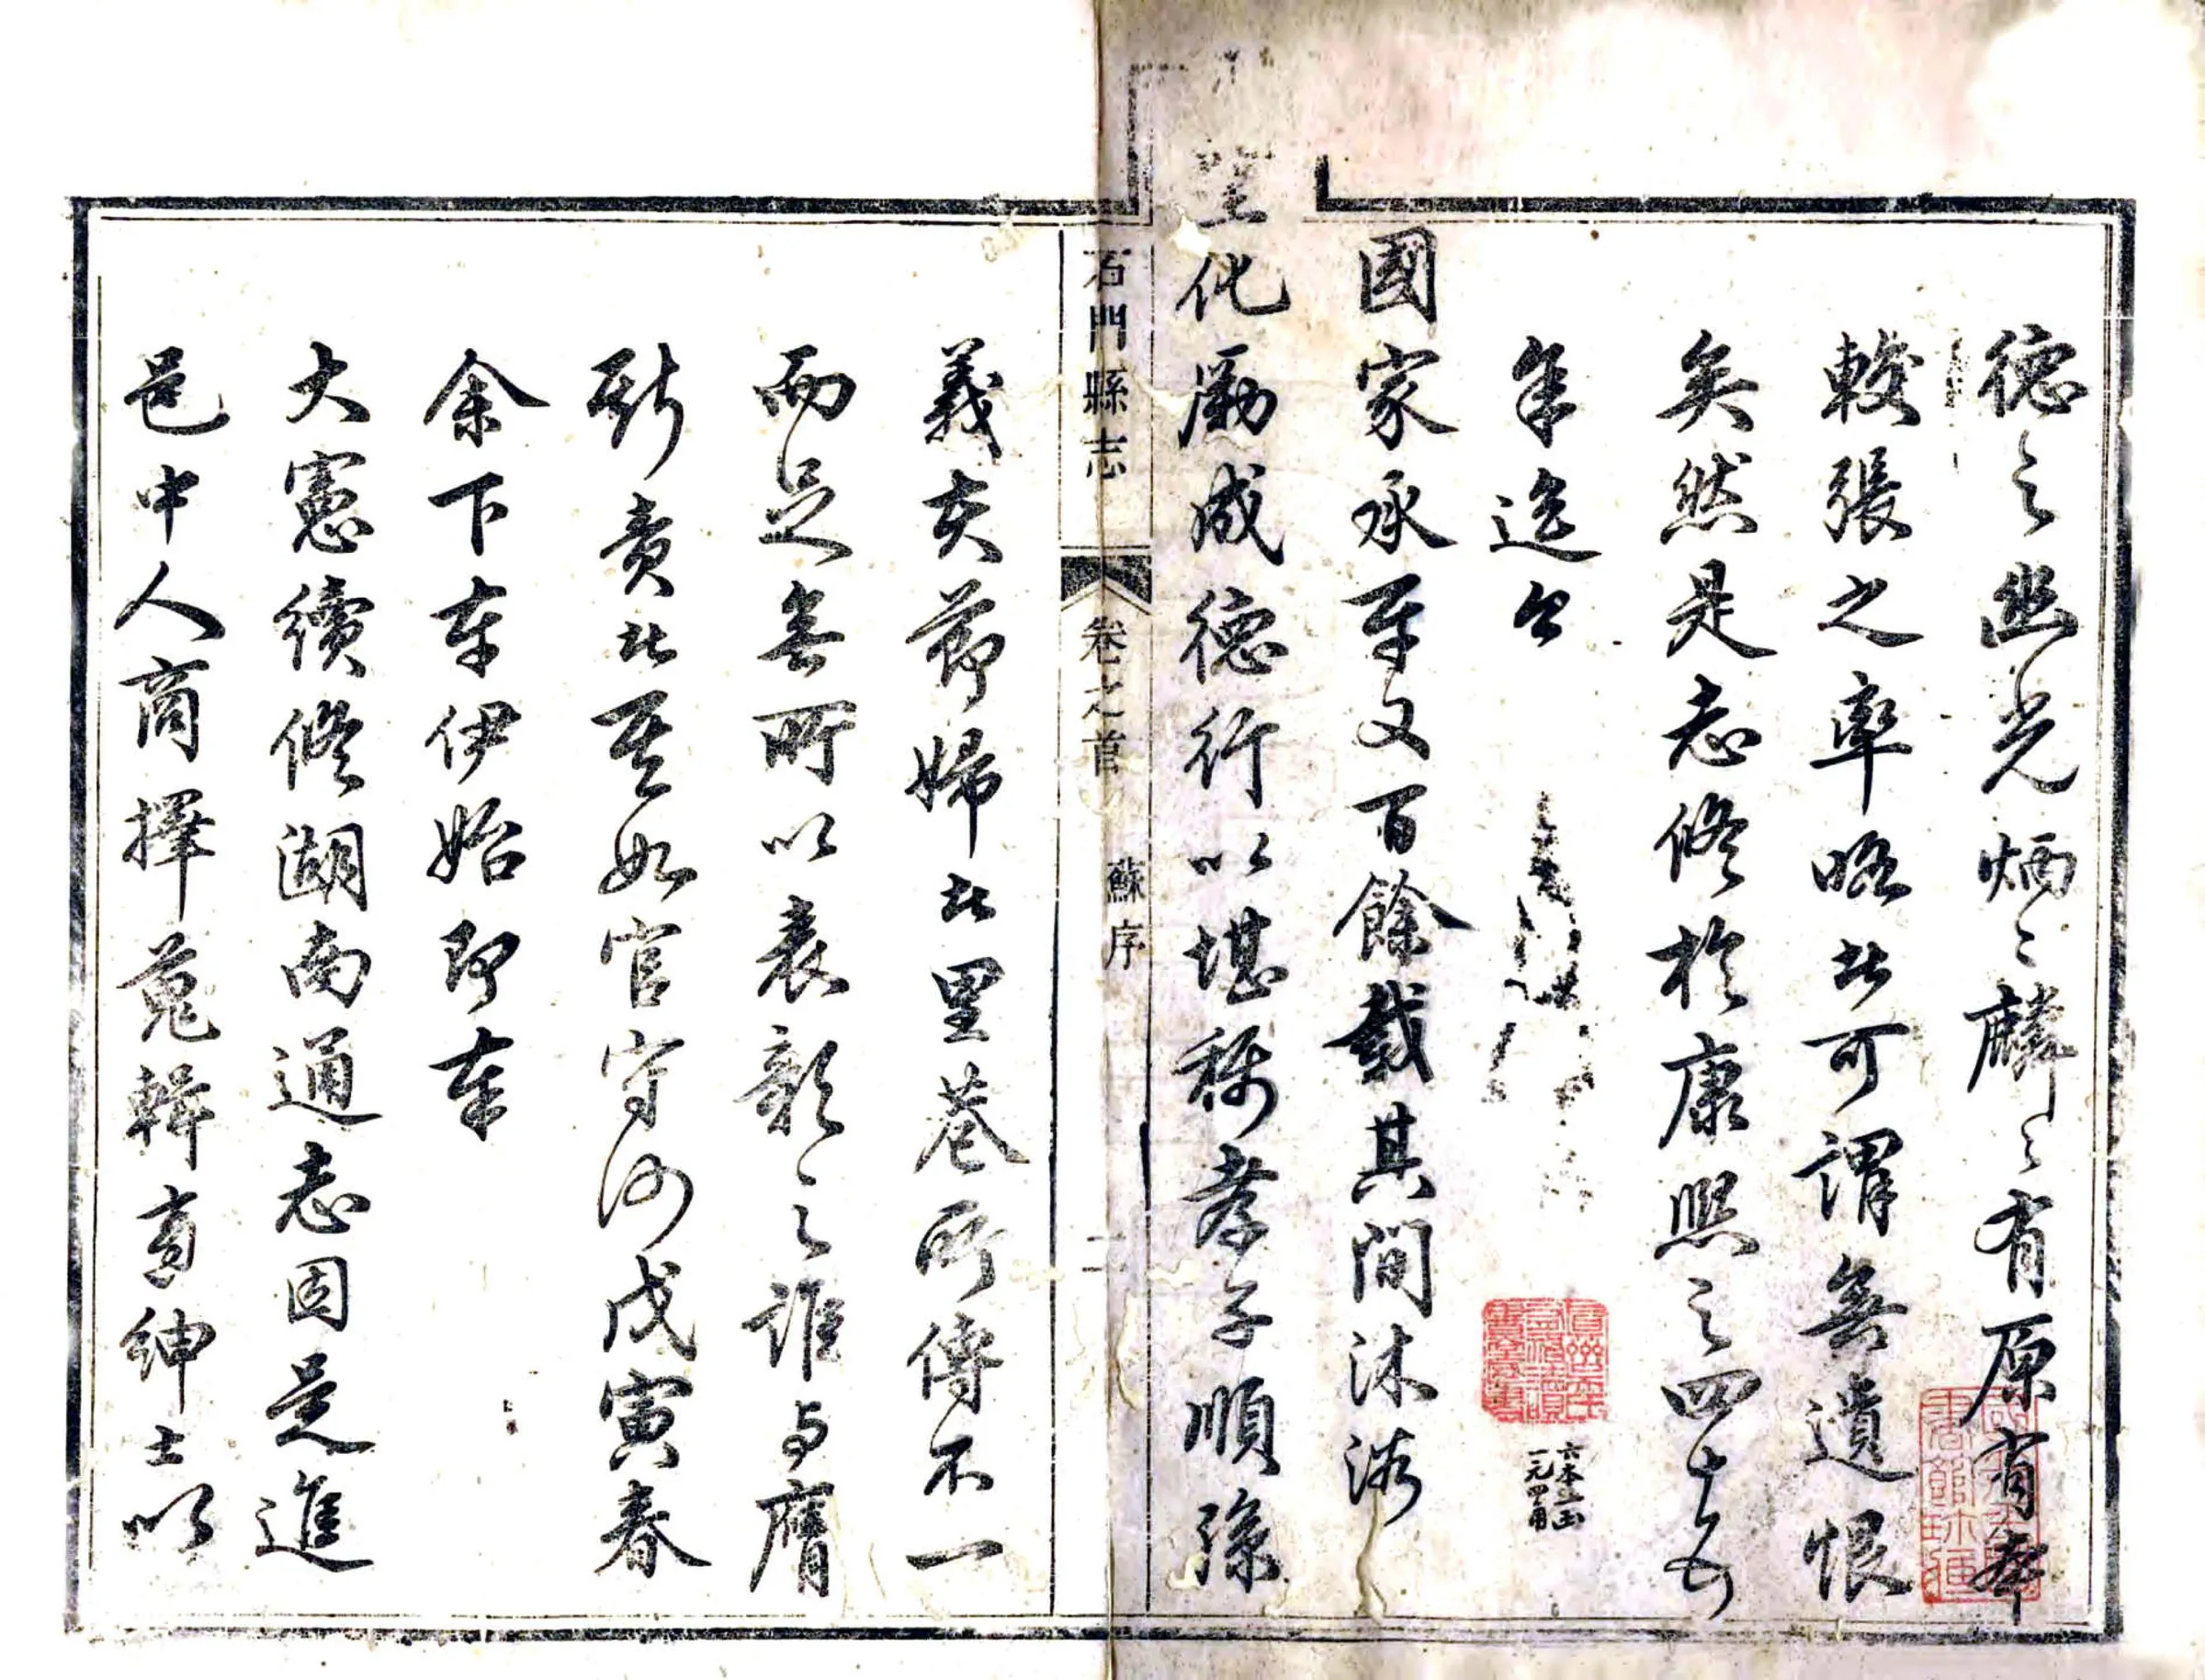 德之幽光炳〻麟〻有原有本
較張之率略者可謂無遺恨
矣然是志修於康熙之四十五
年迄今
國家承平又百餘載其間沐浴
聖化勵成德行以堪稱孝子順孫
六本
一元四角
石門縣志 卷之首 蘇序 二
義夫節婦者里巷所傳不一
而足無所以表彰之誰與膺
斯責者至如官守河戊寅春
余下車伊始即奉
大憲續修湖南通志因是進
邑中人商擇蒐輯責紳士以